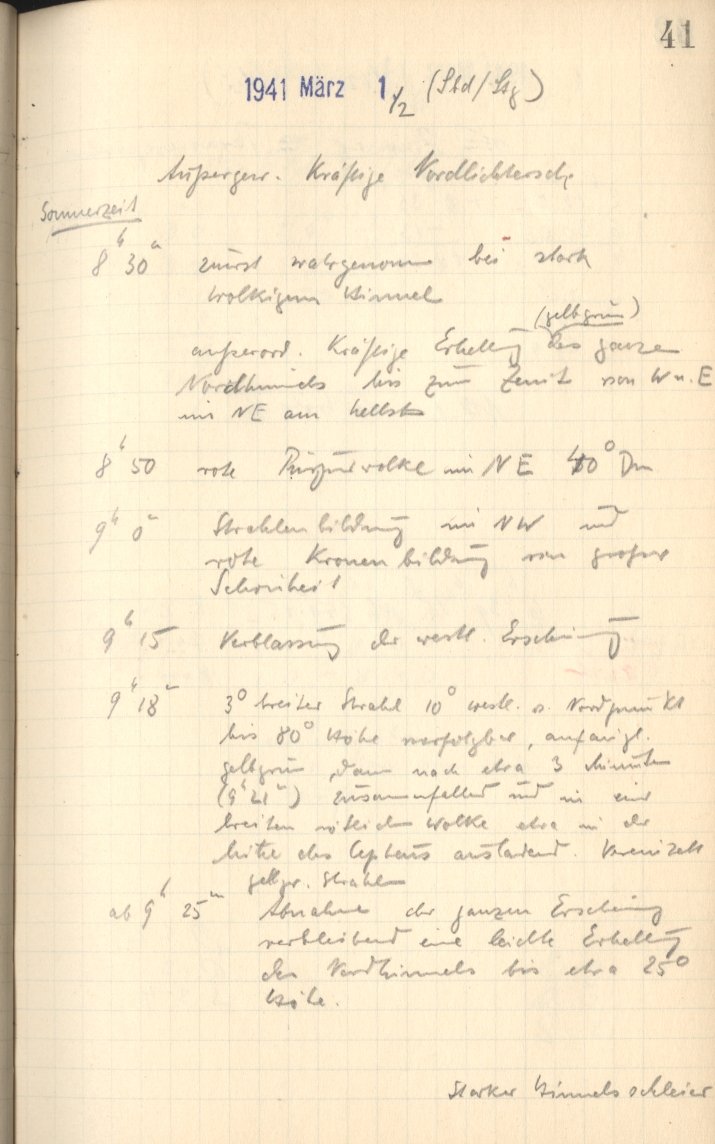 41
1941 März 1./2 (Sbd/Stg)
Außergew. Kräftige Nordlichtersch.
Sommerzeit
8h 30m zuerst wahrgenomm bei stark
wolkigem Himmel
(gelbgrün)
außerord. Kräftige Erhellung des ganzen
Nordhimmels bis zum Zenit von W n. E
im NE am hellsten
8h 50 rote Purpurwolke im NE 40° Dm
9h 0m Strahlenbildung im NW und
rote Kronenbildung von großer
Schönheit
9h 15 Verblassung der westl. Erscheinung
9h 18m 3° breiter Strahl 10° westl. v. Nordpunkt
bis 80° Höhe verfolgbar, anfängl.
gelbgrün, dann nach etwa 3 Minuten
(9h 21m) zusammenfallend und in eine
breiten rötlichen Wolke etwa in der
Mitte des Cepheus ausladend. Vereinzelt
gelbgr. Strahlen
ab 9h 25m Abnahme der ganzen Erscheinung
verbleibend eine leichte Erhellung
des Nordhimmels bis etwa 25°
Höhe.
Starker Himmelsschleier